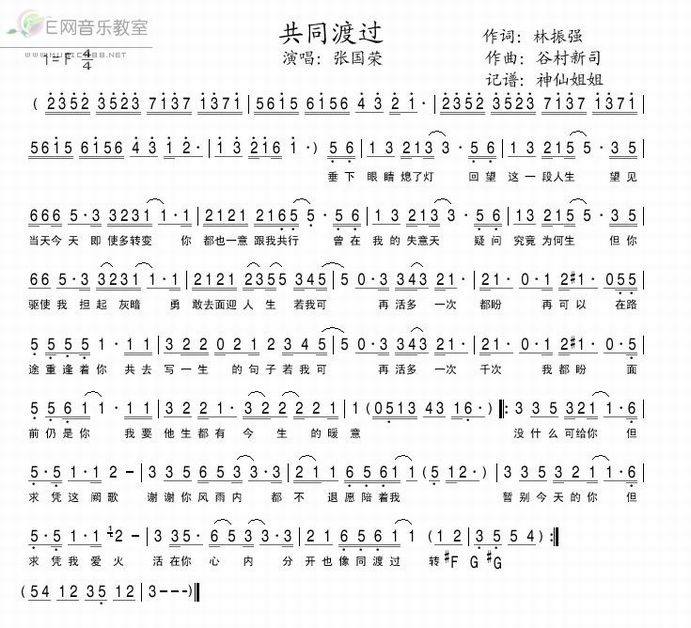 E网音乐教室
WWW.MUSIC888.NET
共同渡过
作词：林振强
1=F 4/4
演唱：张国荣
作曲：谷村新司
记谱：神仙姐姐
( 2352 3523 7137 1371 | 5616 6156 4 3 2 1· | 2352 3523 7137 1371 |
5615 6156 4 3 2 1 · | 1 3 216 1 · ) 5 6 | 1 3 213 3 · 5 6 | 1 3 215 5 · 3 5
垂下 眼睛熄了灯 回望 这一段人生 望见
666 5·3 3231 1·1 | 2121 2165 5 · 5 6 | 1 3 213 3 · 5 6 | 1 3 215 5 · 3 5
当天今天 即使多转变 你 都也一意 跟我共行 曾在 我的失意天 疑问 究竟为何生 但你
66 5·3 3231 1·1 | 2121 2355 345 | 5 0·3 343 21· | 0·1 2#1·0 055
驱使我 担起灰暗 勇 敢去面迎人生 若我可 再活多一次 都盼 再可以 在路
5·5 5 5 1·11 | 322 021 2 345 | 5 0·3 343 21· | 0·1 2#1·0 5
途重逢着你 共去 写一生的句子若我可 再活多一次 千次 我都盼 面
5 561 1·11 | 3222·3222221 | 1 (0513 43 16·) ‖: 3 35 321 1·6
前仍是你 我要他生都有今生的暖意 没什么可给你 但
5·5 1·1 2– | 3356533·3 | 211 6561 (5 12) | 335 321 1·6
求凭这阙歌 谢谢你风雨内 都不退愿陪着我 暂别今天的你 但
5·5 1·1 1/2 2– | 3 35·6533·3 | 21 6561 1 (12 | 35 54) :‖
求凭我爱火 活在你心内 分开也像同渡过 转#F G #G
(54 12 35 12 | 3–– )‖